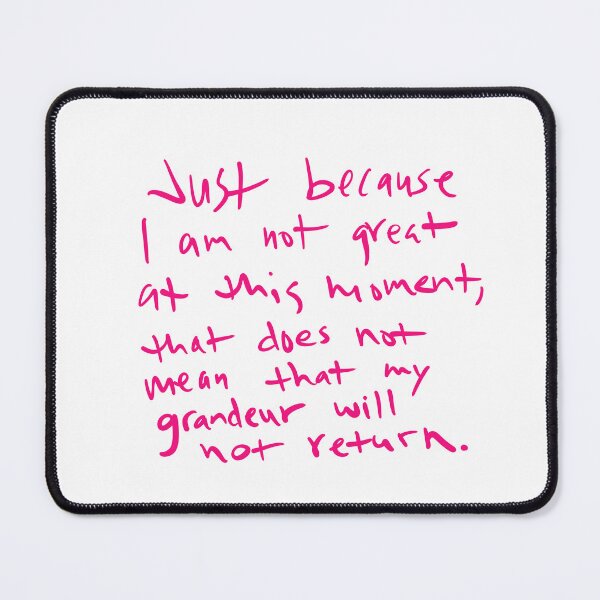 Just because
I am not great
at this moment,
that does not
mean that my
grandeur will
not return.